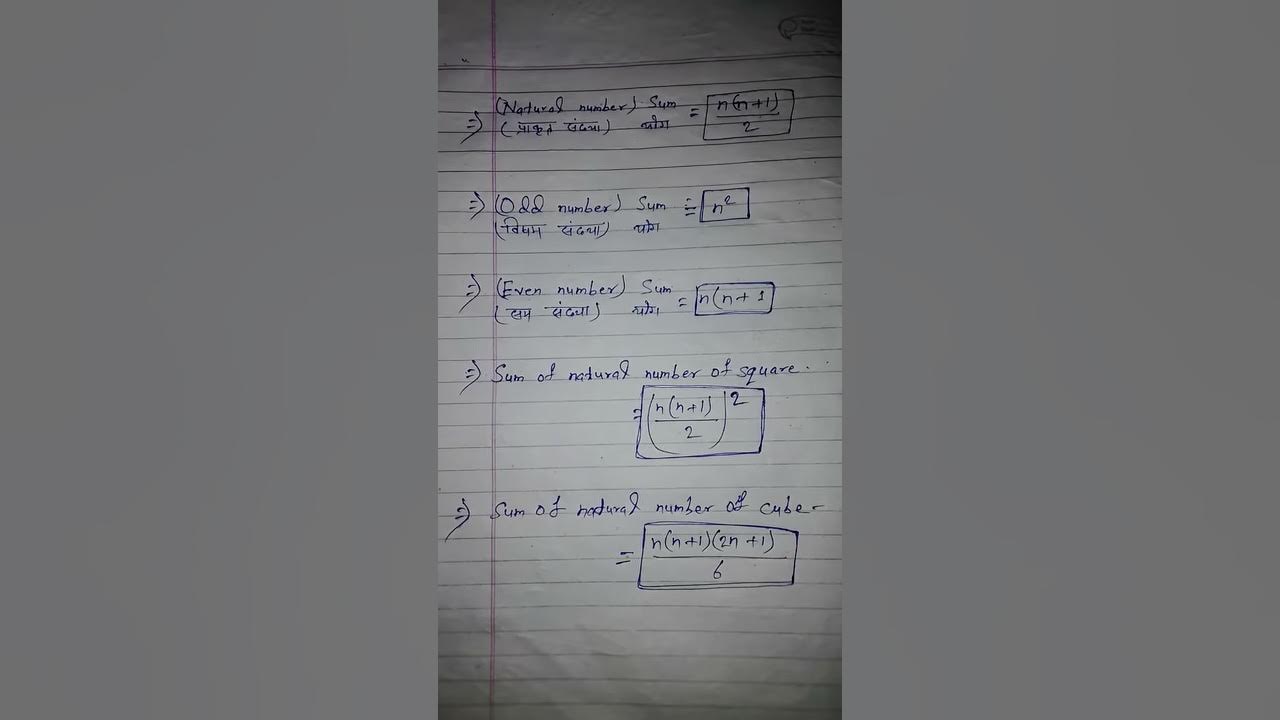 ⇒ (Natural number) Sum = n(n+1)/2
(प्राकृत संख्या) योग
⇒ (Odd number) Sum = n²
(विषम संख्या) योग
⇒ (Even number) Sum = n(n+1
(सम संख्या) योग
⇒ Sum of natural number of square.
= (n(n+1)/2)²
⇒ Sum of natural number of cube-
= n(n+1)(2n+1)/6